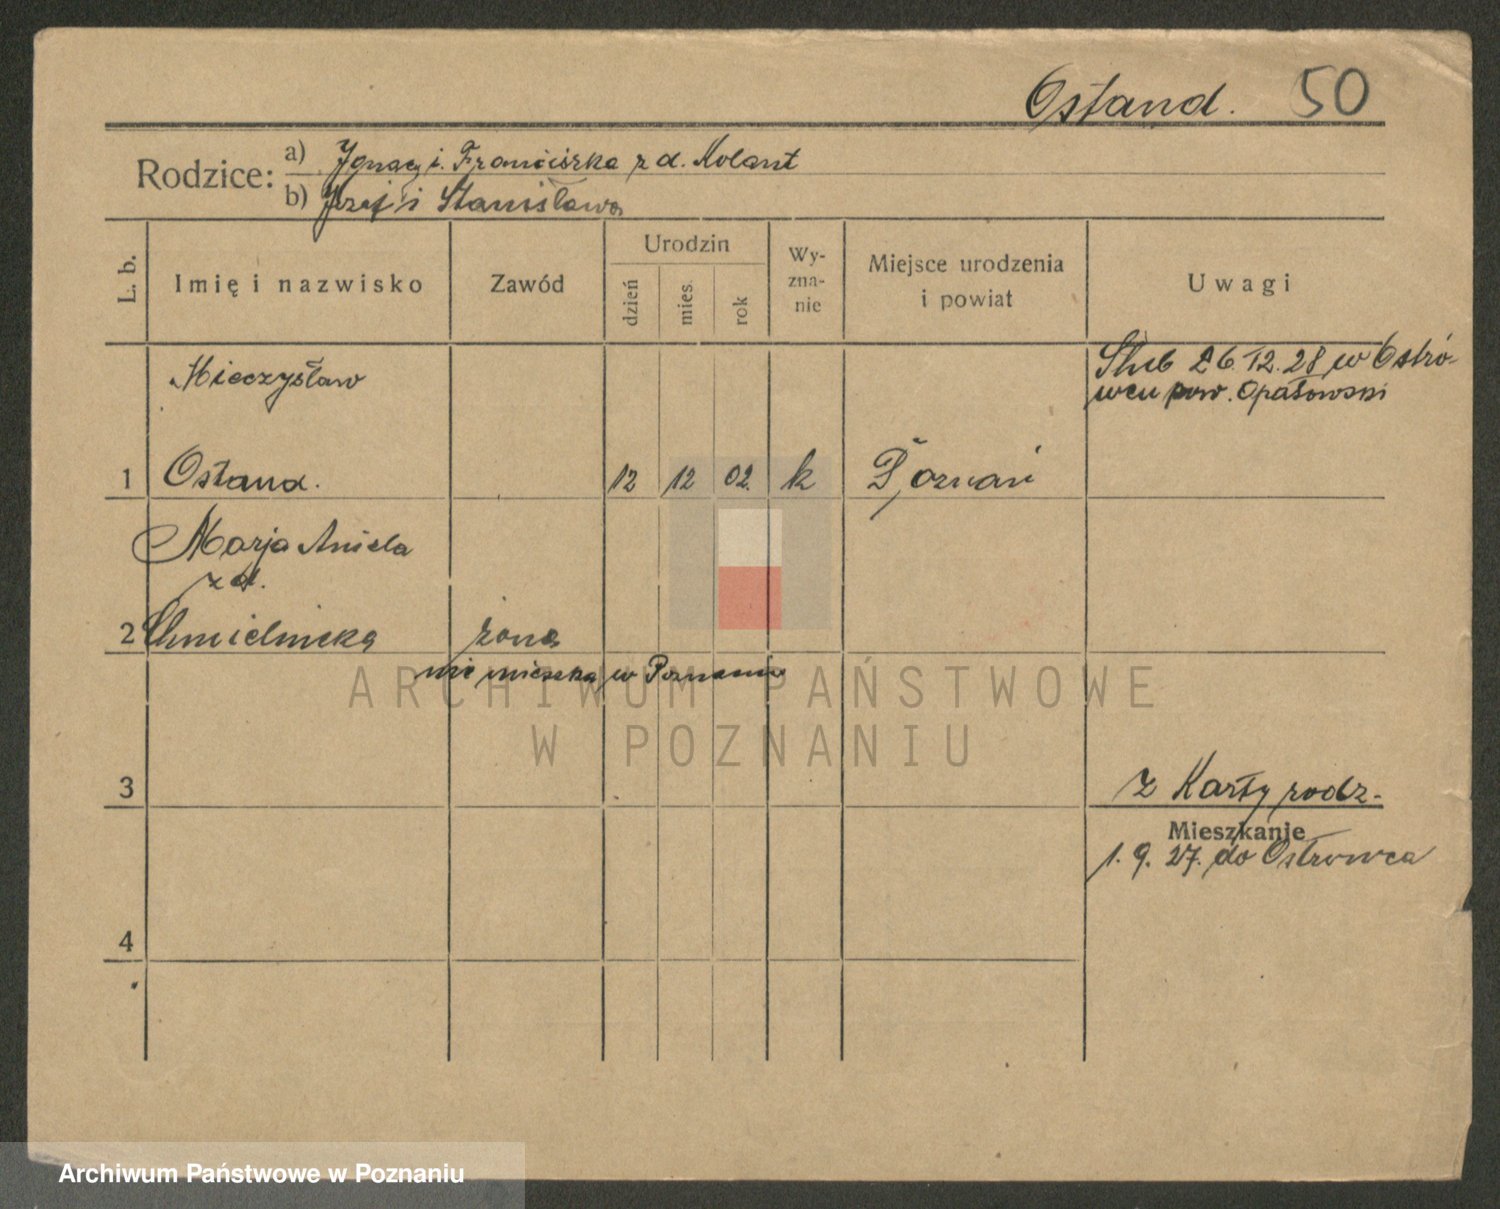 Ostand. 50
Rodzice: a) Ignacy i. Franciszka z d. Kolant
b) Józef i Stanisława
L. b.
Imię i nazwisko
Zawód
Urodzin
dzień
mies.
rok
Wy-
zna-
nie
Miejsce urodzenia
i powiat
Uwagi
Mieczysław
Ślub 26.12.28 w Ostro-
wcu pow. Opatowski
1 Ostand. 12 12 02. k Poznań
Marja Aniela
z d.
2 Chmielnicka żona
nie mieszka w Poznaniu
3
z Karty rodz.
Mieszkanie
1.9.27. do Ostrowca
4
ARCHIWUM PAŃSTWOWE
W POZNANIU
Archiwum Państwowe w Poznaniu